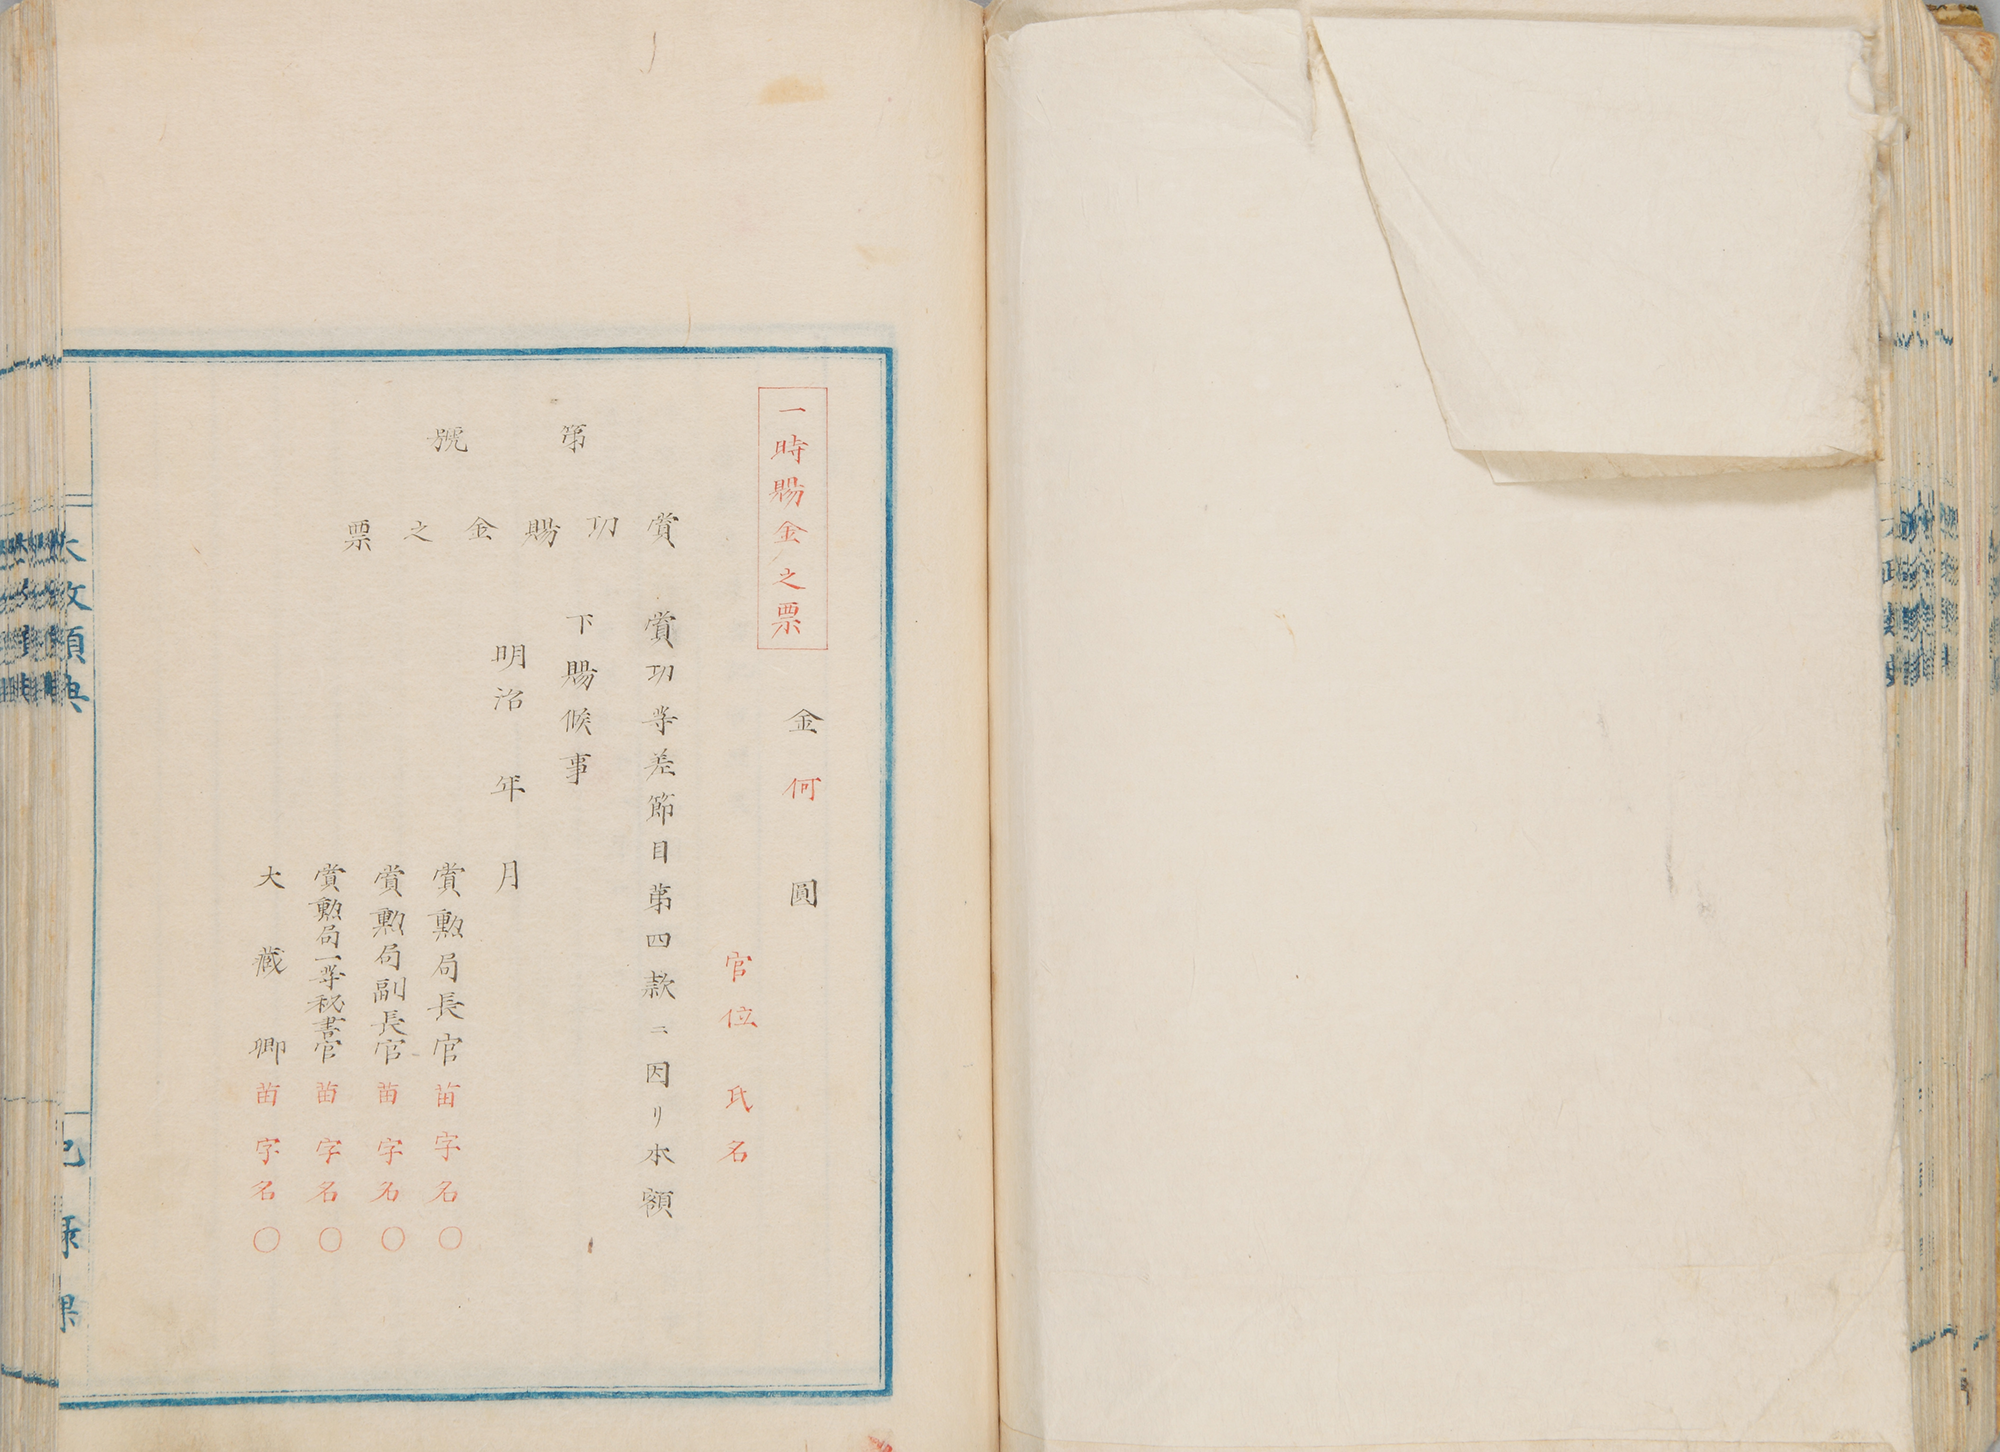 一時賜金之票
金何圓
官位氏名
第號
賞功賜金之票
賞功等差節目第四款ニ因リ本額
下賜候事
明治年月
賞勲局長官苗字名〇
賞勲局副長官苗字名〇
賞勲局一等秘書官苗字名〇
大藏卿苗字名〇